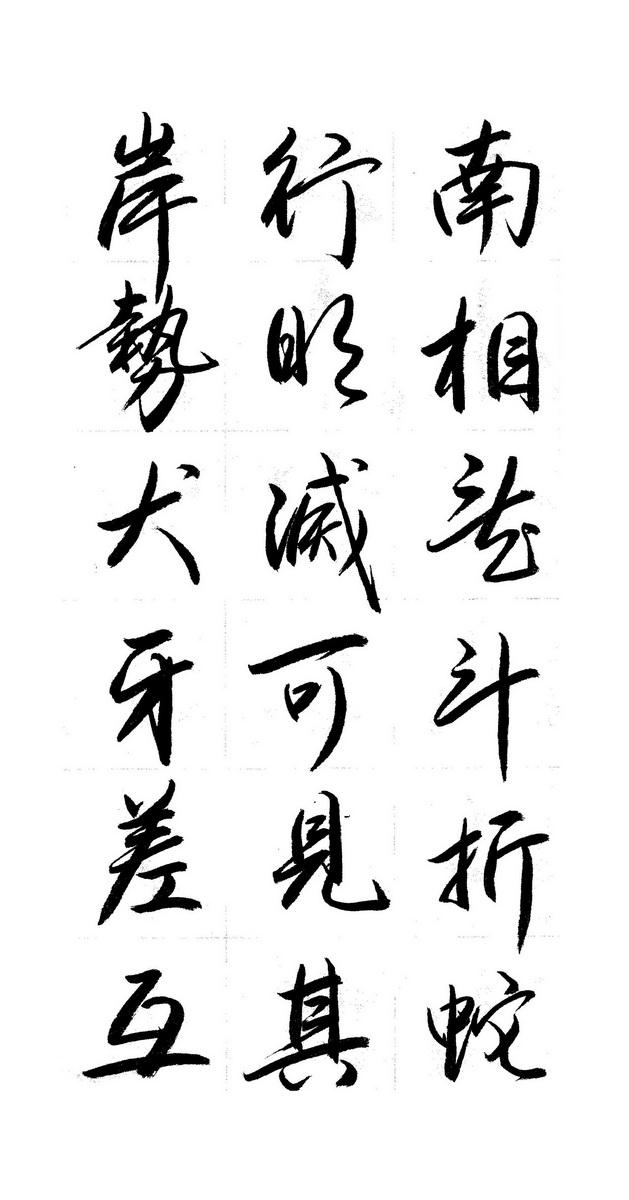 南相斗折蛇
行明滅可見其
岸勢犬牙差互